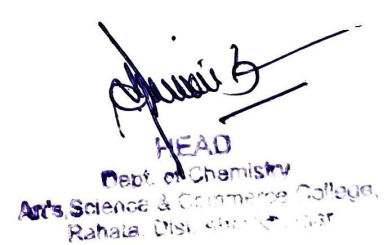 HEAD
Dept. of Chemistry
Arts, Science & Commerce College,
Rahata, Dist.